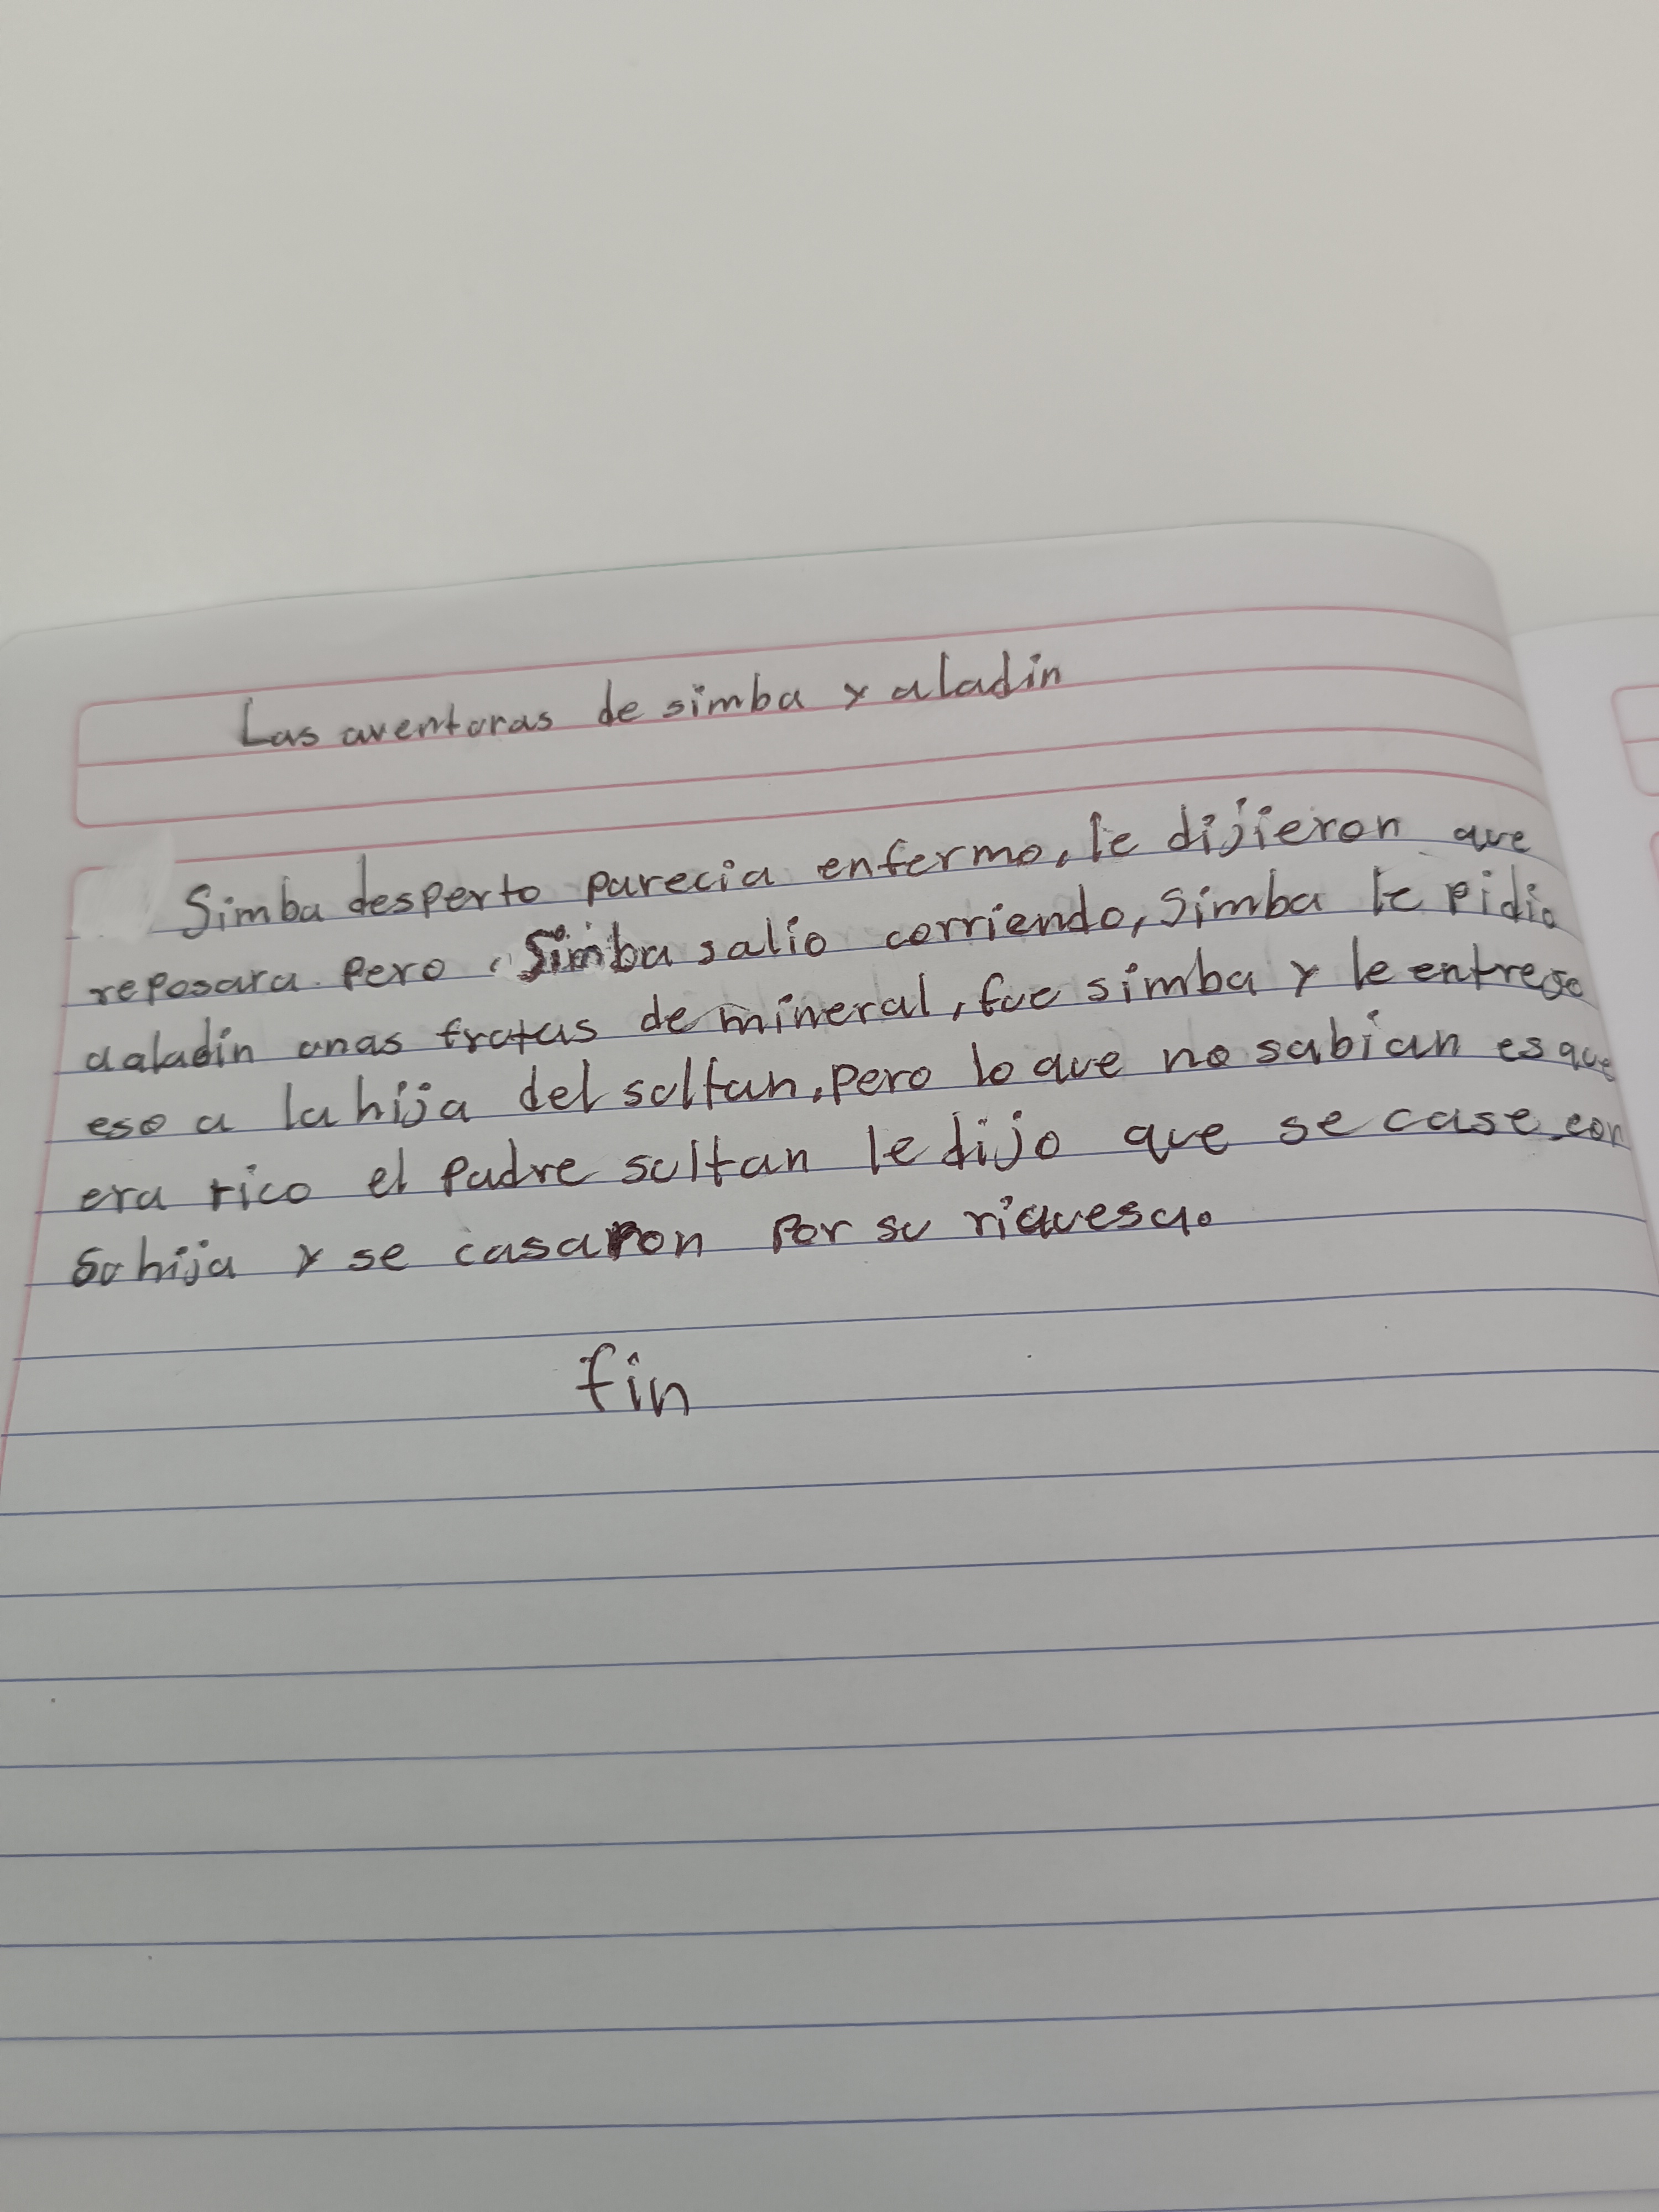 Las aventuras de simba y aladin
Simba desperto parecia enfermo, le dijieron que
reposara. pero, Simba salio corriendo, Simba le pidio
aaladin unas frutas de mineral, fue simba y le entrego
eso a la hija del sultan, pero lo que no sabian es que
era rico el padre sultan le dijo que se case con
su hija y se casaron por su riquesa.
fin